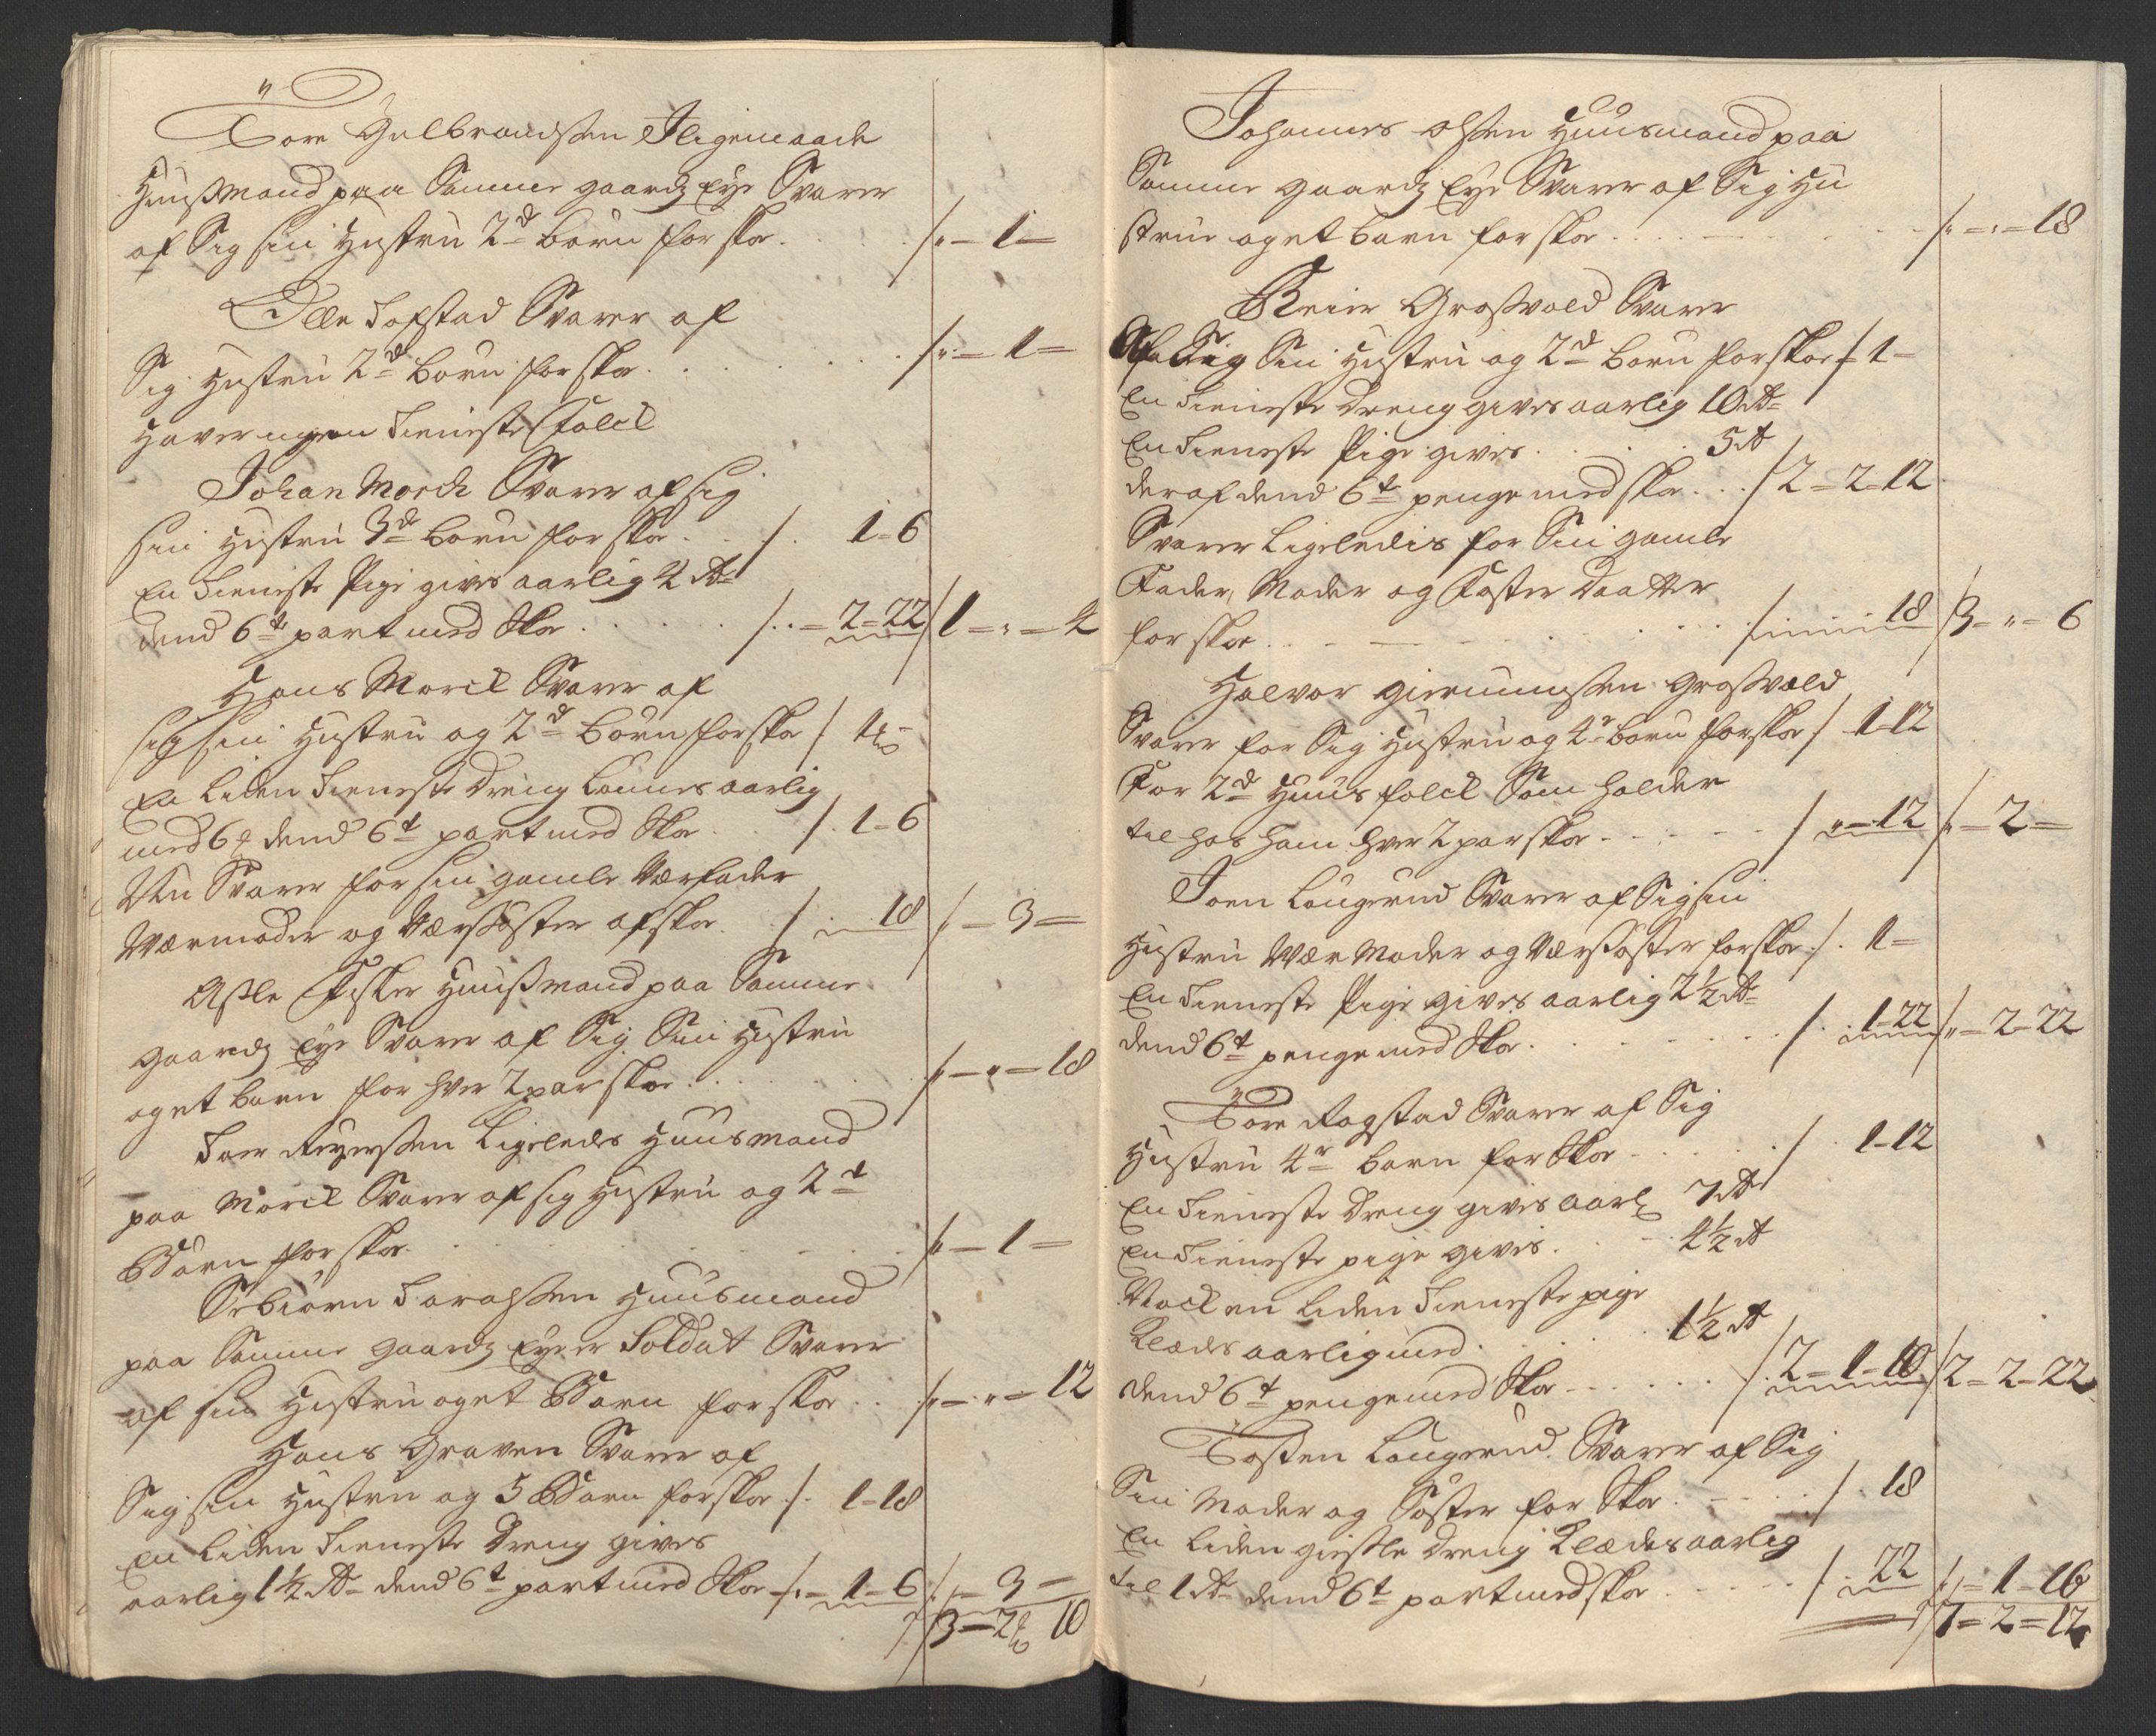 Tore Gulbrandsen Iligemaade
Huusmand paa Samme gaards Eye Svarer
af Sig sin Hustru 2de børn for skoe . . . /" = 1 =
Olle Tofstad Svarer af
Sig Hustru 2de børn for skoe . . . . /" = 1 =
Haver ingen Tieniste Folck
Johan Morck Svarer af sig
sin Hustru 3de børn for skoe . . /. 1 = 6
En Tieniste Pige gives aarlig 4 rd
dend 6te part med Skoe . . . . /. " = 2 = 22 / 1 = " = 4
Hans Morck Svarer af
sig sin Hustru og 2de børn for skoe / 1
En liden Tieneste dreng lønnes aarlig
med 6 dend 6te part med Skoe . . /. 1 = 6
Svarer for sin gamle Værfader
Værmoder og Værsøster af skoe . / . 18 /" = 3 =
Asle Fisker Huusmand paa Samme
gaards Eye Svarer af Sig Sin Hustru
og et barn for hver 2 par skoe . . . . /" = " = 18
Ligeledes Huusmand
paa Morck Svarer af sig Hustru og 2de
Børn for skoe . . . . . . /" = 1 =
Huusmand
paa Samme gaards Eye er Soldat Svarer
af sin Hustru og et Barn for skoe . . /" = " = 12
Hans Graven Svarer af
Sig sin Hustru og 5 Børn for skoe /. 1 = 18
En liden Tieneste Dreng gives
aarlig 1½ rd dend 6te part med Skoe /" = 1 = 6 /" = 3 =
/ 3 = 2 10
Johannes Olsen Huusmand paa
Samme gaards Eye Svarer af Sig Hu
strue og et barn for skoe . . . . . /" = " = 18
Reier Grosvold Svarer
Af Sig Sin Hustru og 2de børn for skoe / 1 =
En Tieneste dreng gives aarlig 10 rd
En Tieneste Pige gives . . . 5 rd
deraf dend 6te penge med skoe . . / 2 = 2 = 12
Svarer Ligeledis for Sin gamle
Fader, Moder og Søster Daatter
for skoe . . . . . . / 18 / 3 = " = 6
Halvor Grosvold
Svarer for Sig Hustru og 4r børn for skoe / 1 = 12
For 2de Huus folck Som holder
til hos ham hver 2 par skoe . . . . / " = 12 /" = 2 =
Joen Laugerud Svarer af Sig sin
Hustru Vær Moder og Værsøster for skoe /. 1 =
En Tieneste Pige gives aarlig 2½ rd
dend 6te penge med Skoe . . . . . /. 1 = 22 /" = 2 = 22
Tore Rogstad Svarer af Sig
Hustru 4r børn for Skoe . . . . / . 1 = 12
En Tieneste Dreng gives aarl 7 rd
En Tieneste pige gives . . . 4½ rd
Nock en liden Tieneste pige
Klædes aarlig med . . . . 1½ rd
dend 6te penge med Skoe . . . . /. 2 = 1 = 10 / 2 = 2 = 22
Tosten Laugerud Svarer af Sig
Sin Moder og Søster for Skoe . . . . /. 18
En liden giesle Dreng Klædes aarlig
til 1 rd dend 6te part med skoe . . . . /. 22 /" = 1 = 16
/ 7 = 2 = 12